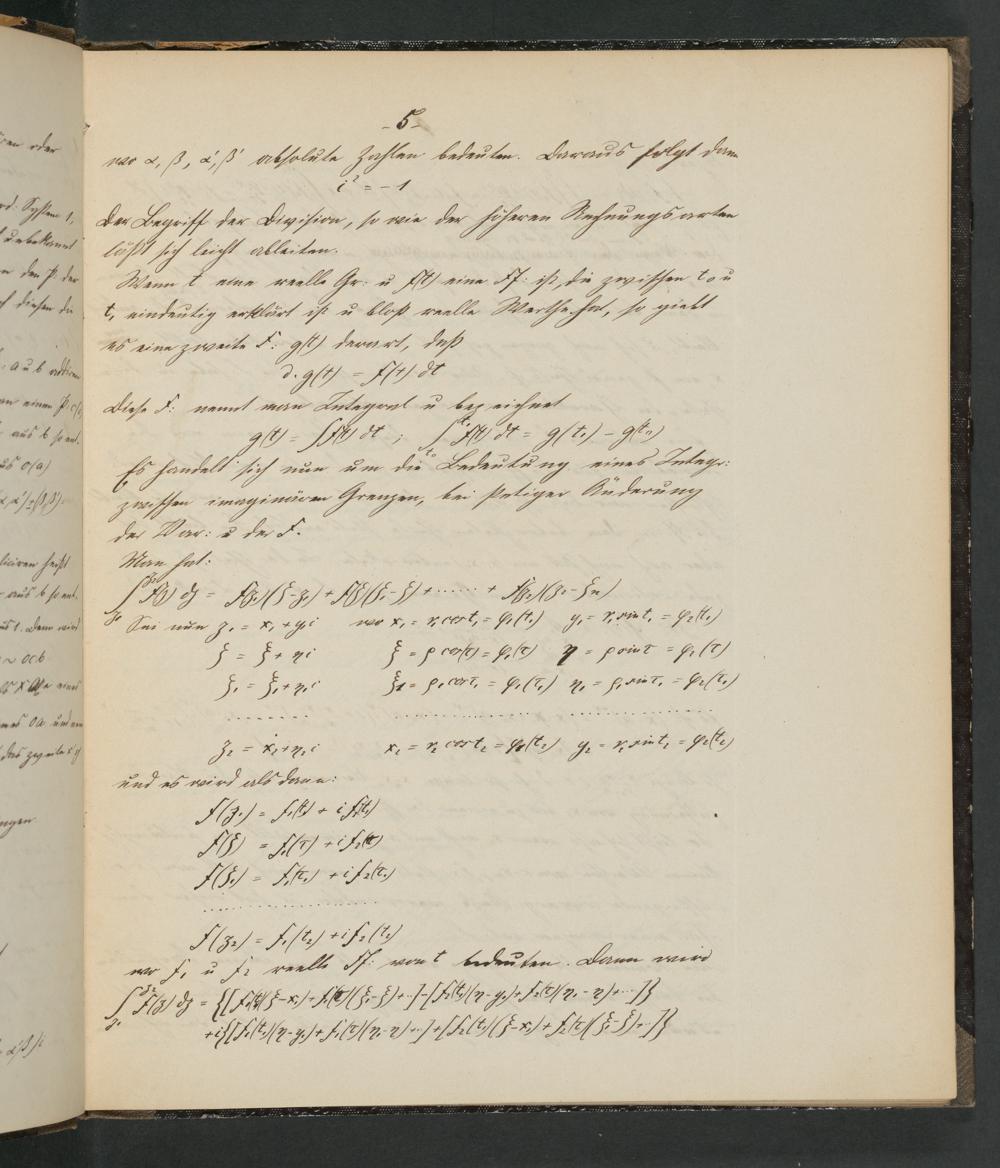 -5-
wo α, β, α', β' absolute Zahlen bedeuten. Daraus folgt dann
i² = -1
Der Begriff der Division, so wie der höheren Rechnungsarten
läßt sich leicht ableiten.
Wenn t eine reelle Gr: u f(t) eine Ff: ist, die zwischen t₀ u
t₁ eindeutig erklärt ist u bloß reelle Werthe hat, so giebt
es eine zweite F: g(t) derart, daß
d. g(t) = f(t) dt
Diese F: nennt man Integral u bezeichnet
g(t) = ∫f(t) dt ; ∫ f(t) dt = g(t₁) - g(t₀)
Es handelt sich nun um die Bedeutung eines Integr:
zwischen imaginären Grenzen, bei stetiger Änderung
der Var: u der F.
Man hat:
∫ f(z) dz = f(z₁)(ζ-z₁) + f(ζ)(ζ₁-ζ) + ...... + f(z₂)(z₂-ζn)
Sei nun z₁ = x₁ + y₁i wo x₁ = r₁cost₁ = φ₁(t₁) y₁ = r₁sint₁ = φ₂(t₁)
ζ = ξ + ηi ξ = ρ cos(τ) = φ₁(τ) η = ρ sinτ = φ₂(τ)
ζ₁ = ξ₁ + η₁i ξ₁ = ρ₁cosτ₁ = φ₁(τ₁) η₁ = ρ₁sinτ₁ = φ₂(τ₁)
....... ............... ...............
z₂ = x₂ + y₂i x₂ = r₂cost₂ = φ₁(t₂) y₂ = r₂sint₂ = φ₂(t₂)
und es wird alsdann:
f(z₁) = f₁(t₁) + i f₂(t₁)
f(ζ) = f₁(τ) + i f₂(τ)
f(ζ₁) = f₁(τ₁) + i f₂(τ₁)
..................
f(z₂) = f₁(t₂) + i f₂(t₂)
wo f₁ u f₂ reelle Ff: von t bedeuten. Dann wird
∫ f(z) dz = {[f₁(t₁)(ξ-x₁)+f₁(τ)(ξ₁-ξ)+...]-[f₂(t₁)(η-y₁)+f₂(τ)(η₁-η)+...]}
+i{[f₁(t₁)(η-y₁)+f₁(τ)(η₁-η)+...]+[f₂(t₁)(ξ-x₁)+f₂(τ)(ξ₁-ξ)+..]}